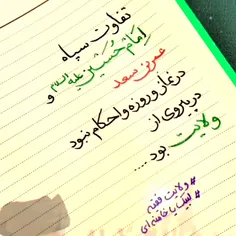 تفاوت سپاه
امام حسین علیه السلام
و
عمر بن سعد
در نماز و روزه و احکام نبود
در پیروی از
ولایت بود ....
# ولایت فقیه
# لبیک یا خامنه ای